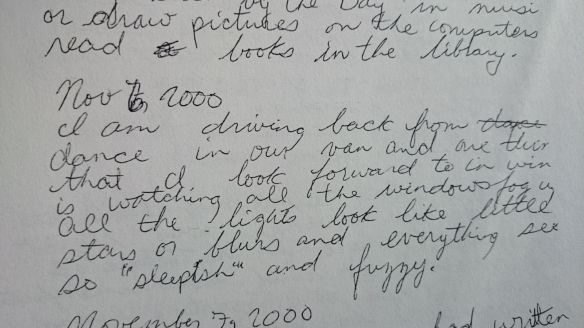 by the Day in musi
or draw pictures on the computers
read books in the library.
Nov 6, 2000
I am driving back from dance
dance in our van and one thin
that I look forward to in win
is watching all the windows fog u
all the lights look like little
stars or blurs and everything see
so "sleepish" and fuzzy.
November 7, 2000
had written